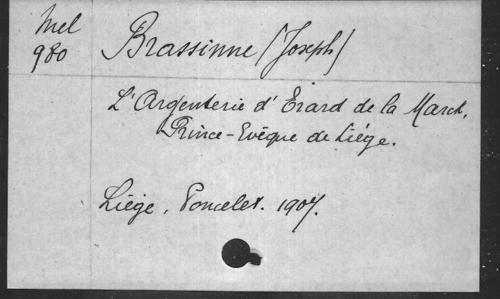 Mel
980
Brassinne (Joseph)
L'Argenterie d'Erard de la Marck,
Prince-Evêque de Liége.
Liége, Poncelet. 1907.